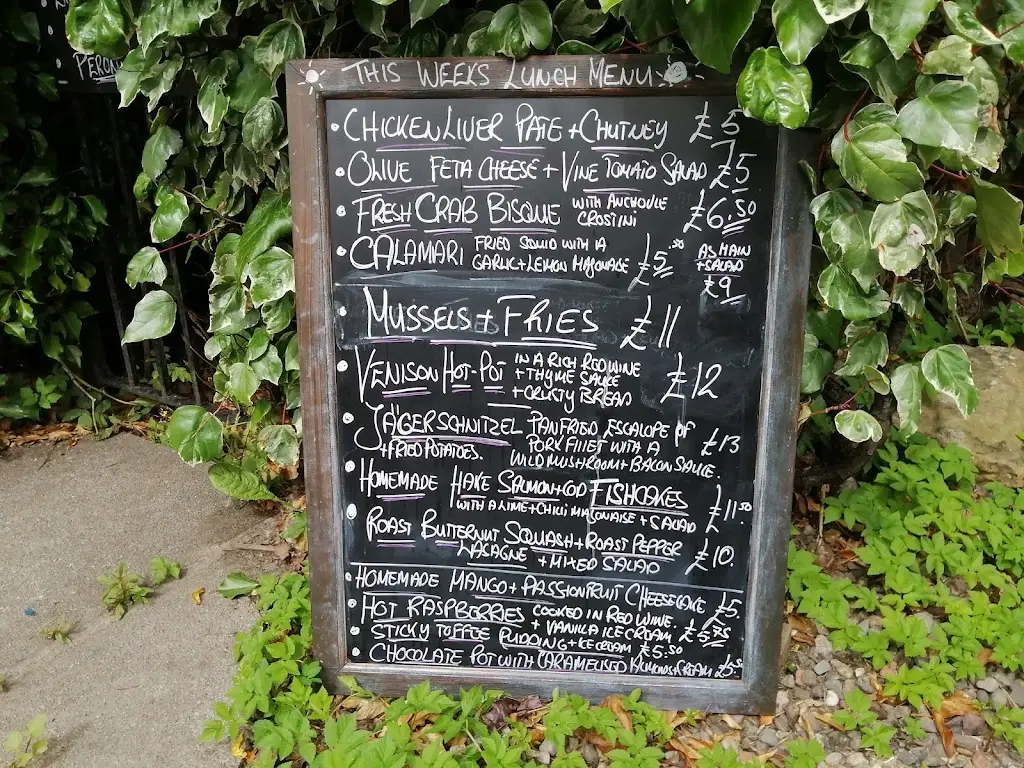 PERONI
THIS WEEKS LUNCH MENU
CHICKEN LIVER PATE + CHUTNEY £5
OLIVE FETA CHEESE + VINE TOMATO SALAD £5
FRESH CRAB BISQUE WITH ANCHOVIE £6.50
CROSTINI
CALAMARI FRIED SQUID WITH A £5.50 AS MAIN
GARLIC + LEMON MAYONAISE + SALAD
£9
MUSSELS + FRIES £11
VENISON HOT-POT IN A RICH RED WINE £12
+ THYME SAUCE
+ CRUSTY BREAD
JÄGERSCHNITZEL PANFRIED ESCALOPE OF £13
+ FRIED POTATOES. PORK FILLET WITH A
WILD MUSHROOM + BACON SAUCE.
HOMEMADE HAKE SALMON + COD FISHCAKES £11.50
WITH A LIME + CHILLI MAYONAISE + SALAD
ROAST BUTTERNUT SQUASH + ROAST PEPPER £10.
LASAGNE + MIXED SALAD
HOMEMADE MANGO + PASSIONFRUIT CHEESECAKE £5.
HOT RASPBERRIES COOKED IN RED WINE.
+ VANILLA ICE CREAM £5.75
STICKY TOFFEE PUDDING + ICE CREAM £5.50
CHOCOLATE POT WITH CARAMELISED ALMONDS + CREAM